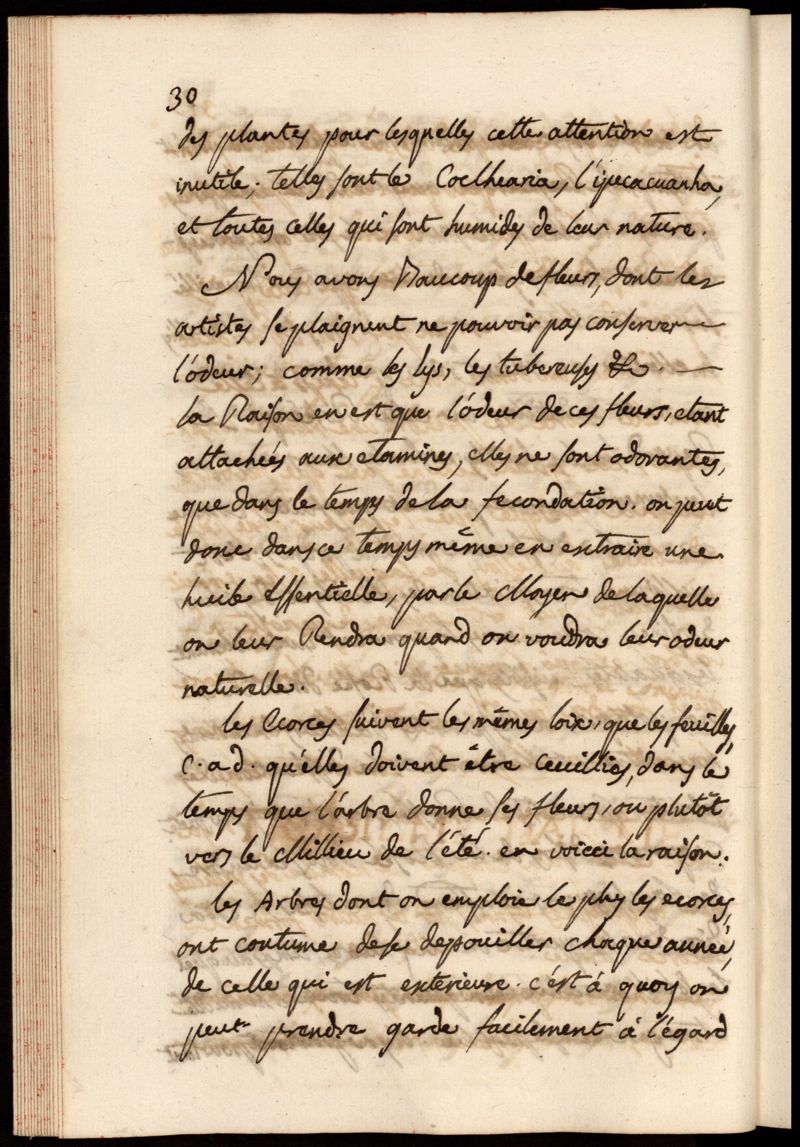 30
des plantes pour lesquelles cette attention est
inutile; telles sont le Coclhearia, l'ipecacuanha,
et toutes celles qui sont humides de leur nature.
Nous avons Baucoup de fleurs, dont les
artistes se plaignent ne pouvoir pas conserver
l'ódeur; comme les lys, les tubereuses &c. —
la Raison en est que l'ódeur de ces fleurs, etant
attachées aux etamines, elles ne sont odorantes,
que dans le temps de la fecondation. on peut
donc dans ce temps même en extraire une
huile Essentielle, par le Moyen de laquelle
on leur Rendra quand on voudra leur odeur
naturelle.
les Ecorces suivent les mêmes loix, que les feuilles,
C. a d. qu'élles doivent être ceuillies, dans le
temps que l'árbre donne ses fleurs, ou plutôt
vers le Millieu de l'été. en voicci la raison.
les Arbres dont on emploie le plus les ecorces,
ont coutume de se depouiller chaque année,
de celle qui est exterieure. c'ést á quoy on
peut prendre garde facilement á l'égard